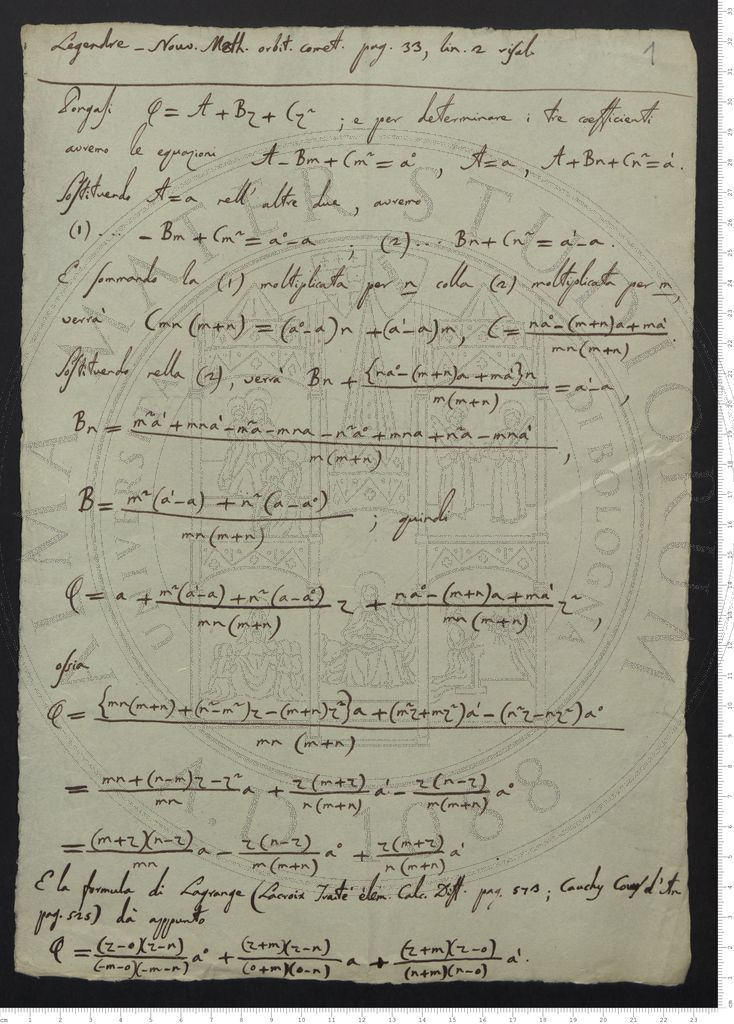 Legendre – Nouv. Meth. orbit. comet. pag. 33, lin. 2 risal.
1
Pongasi φ = A + Bz + Cz² ; e per determinare i tre coefficienti
avremo le equazioni A – Bm + Cm² = a° , A = a , A + Bn + Cn² = a'.
Sostituendo A = a nell' altre due , avremo
(1) .... – Bm + Cm² = a° – a ; (2) ... Bn + Cn² = a' – a .
E sommando la (1) moltiplicata per n colla (2) moltiplicata per m,
verrà Cmn (m+n) = (a° – a) n + (a' – a) m, C = (na° – (m+n)a + ma')/(mn(m+n)) .
Sostituendo nella (2), verrà Bn + ({na° – (m+n)a + ma'}n)/(m(m+n)) = a' – a ,
Bn = (m²a' + mna' – m²a – mna – n²a° + mna + n²a – mna')/(m(m+n)) ,
B = (m²(a' – a) + n²(a – a°))/(mn(m+n)) ; quindi
φ = a + (m²(a' – a) + n²(a – a°))/(mn(m+n)) z + (na° – (m+n)a + ma')/(mn(m+n)) z² ,
ossia
φ = ({mn(m+n) + (n² – m²)z – (m+n)z²}a + (m²z + mz²)a' – (n²z – nz²)a°)/(mn(m+n))
= (mn + (n–m)z – z²)/(mn) a + (z(m+z))/(n(m+n)) a' – (z(n–z))/(m(m+n)) a°
= ((m+z)(n–z))/(mn) a – (z(n–z))/(m(m+n)) a° + (z(m+z))/(n(m+n)) a'
E la formula di Lagrange (Lacroix Traité élém. Calc. Diff. pag. 573 ; Cauchy Cours d'An.
pag. 525) dà appunto
φ = ((z–0)(z–n))/((–m–0)(–m–n)) a° + ((z+m)(z–n))/((0+m)(0–n)) a + ((z+m)(z–0))/((n+m)(n–0)) a'.
ALMA MATER STUDIORUM
UNIVERSITÀ DI BOLOGNA
A.D. 1088